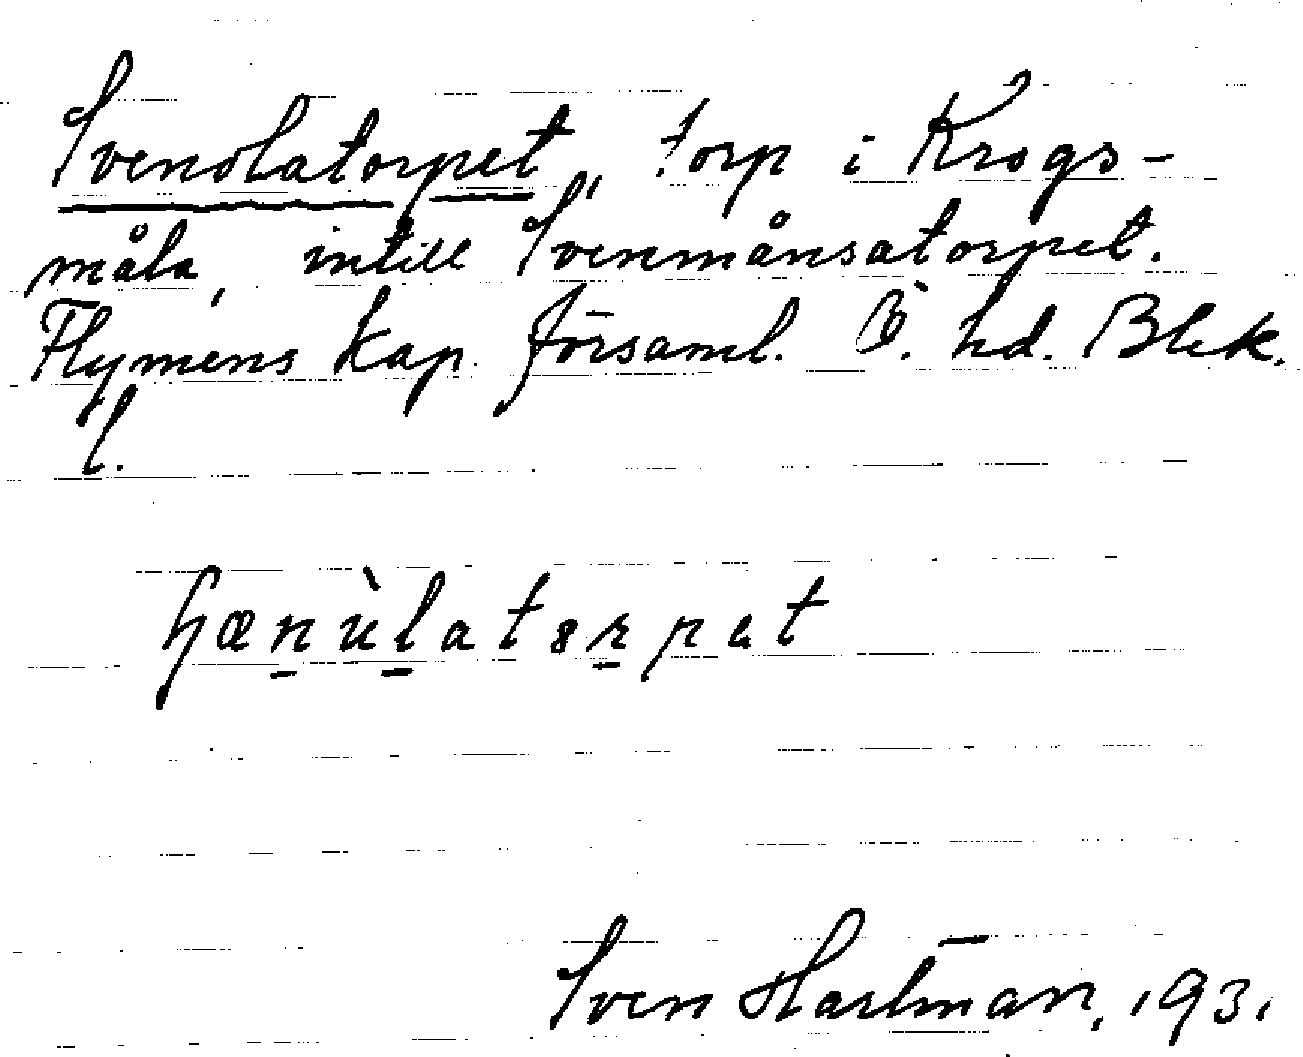 Svenolatorpet, torp i Krogs-
måla, intill Svenmånsatorpet.
Flymens kap. församl. Ö. hd. Blek.
l.
Sven Hartman, 1931